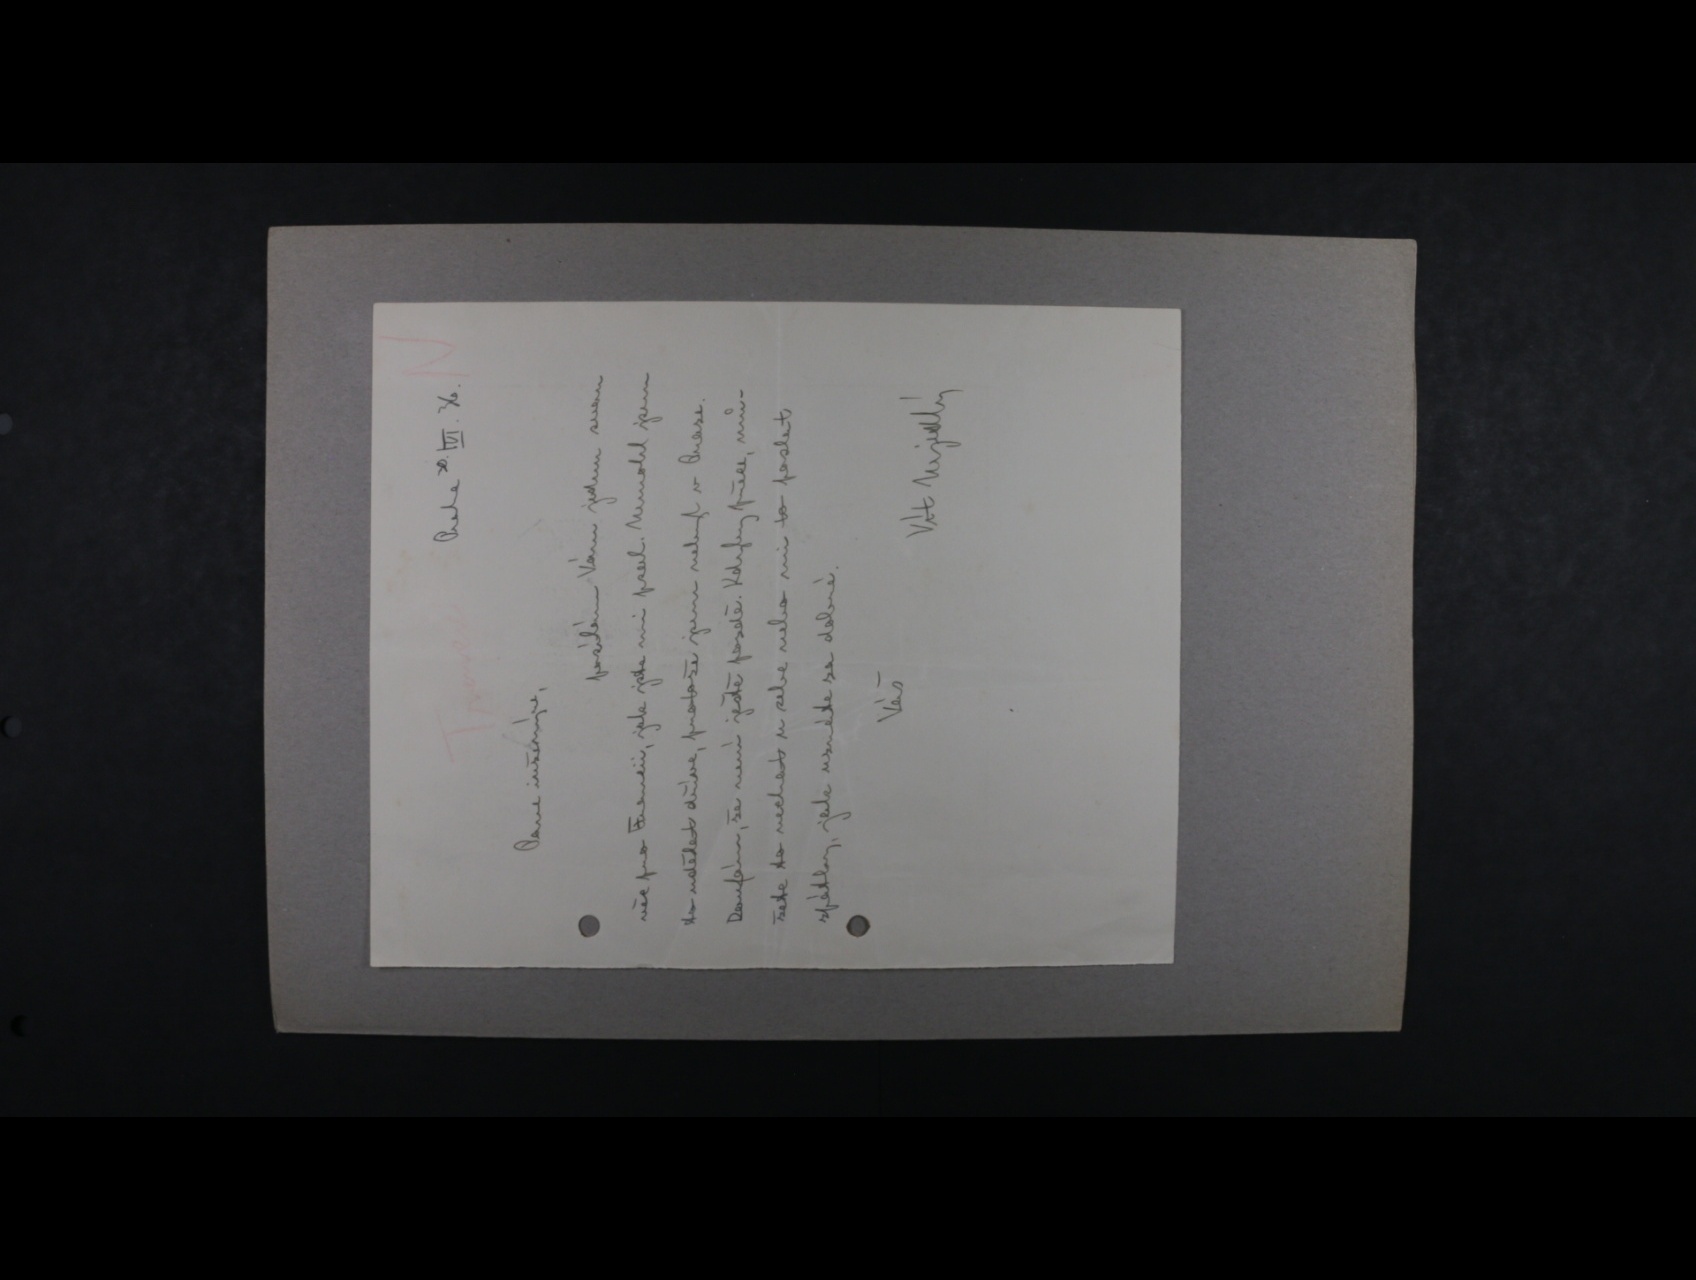 N
Praha 20. VI. 36.
Pane inženýre,
posílám Vám jednu svou
věc pro Fronesii, jak jste mi psal. Nemohl jsem
to udělat dříve, protože jsem nebyl v Praze.
Doufám, že není ještě pozdě. Kdyby přece, mů-
žete to nechat u sebe nebo mi to poslat
zpátky, jak uznáte za dobré.
Váš
Vít Nejedlý